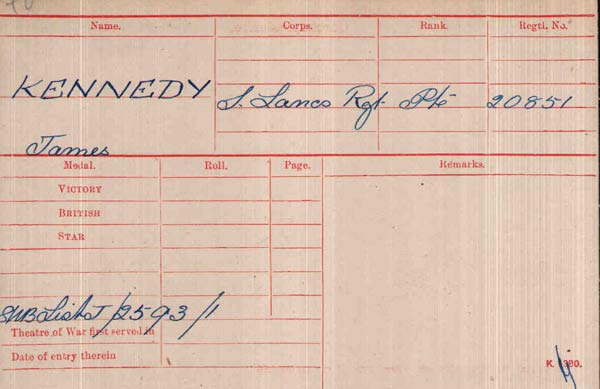 Name. Corps. Rank. Regtl. No.
KENNEDY S. Lancs Rgt Pte 20851
James
Medal. Roll. Page. Remarks.
VICTORY
BRITISH
STAR
SWB List J/2593/1
Theatre of War first served in
Date of entry therein
K. 1380.